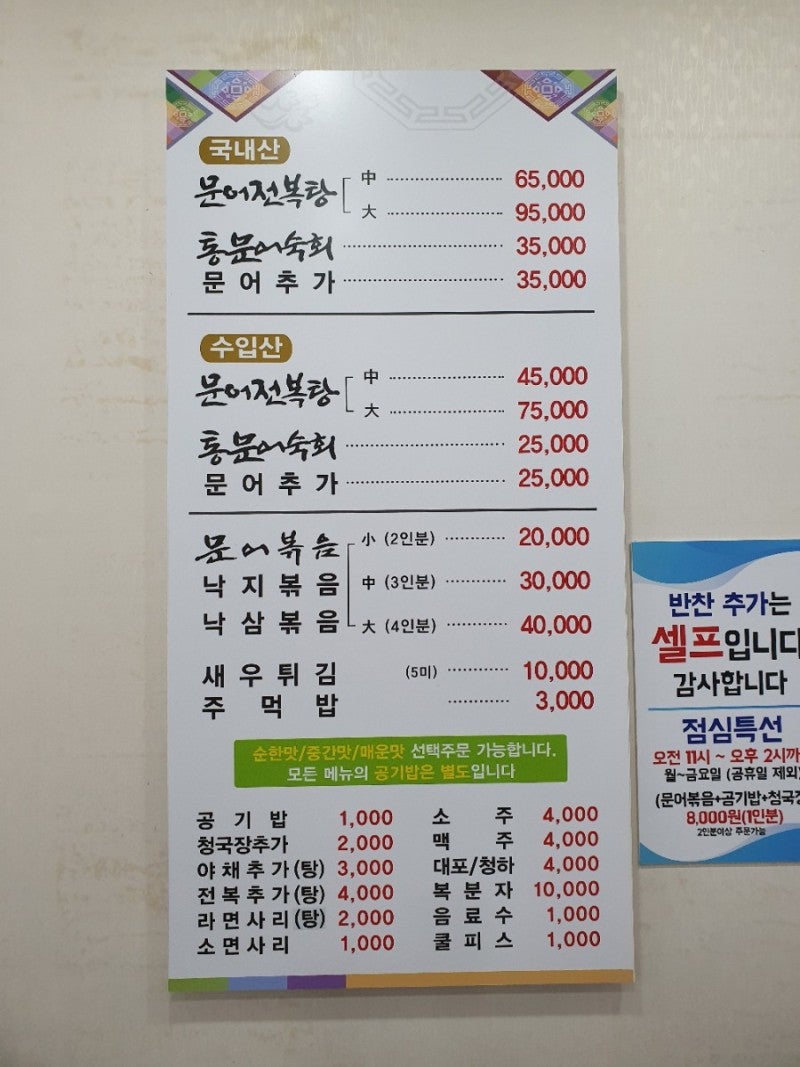 국내산
문어전복탕 中 65,000
大 95,000
통문어숙회 35,000
문어추가 35,000
수입산
문어전복탕 中 45,000
大 75,000
통문어숙회 25,000
문어추가 25,000
문어볶음 小 (2인분) 20,000
낙지볶음 中 (3인분) 30,000
낙삼볶음 大 (4인분) 40,000
새우튀김 (5미) 10,000
주먹밥 3,000
순한맛/중간맛/매운맛 선택주문 가능합니다.
모든 메뉴의 공기밥은 별도입니다
공기밥 1,000
청국장추가 2,000
야채추가(탕) 3,000
전복추가(탕) 4,000
라면사리(탕) 2,000
소면사리 1,000
소주 4,000
맥주 4,000
대포/청하 4,000
복분자 10,000
음료수 1,000
쿨피스 1,000
반찬 추가는
셀프입니다
감사합니다
점심특선
오전 11시 ~ 오후 2시까
월~금요일 (공휴일 제외)
(문어볶음+공기밥+청국장
8,000원(1인분)
2인분이상 주문가능